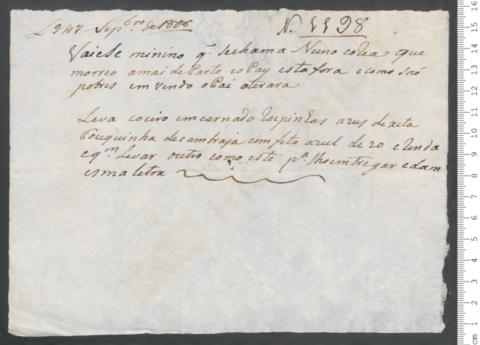 L 947 - Sepbro de 1806 N. 1198
Vai este minino q. se chama Nuno coVea que
morreo a mai de Parto e o Pay esta fora e como saõ
pobres em vindo o Pai o terara
Leva coeiro emcarnado
Touquinha de cambraia com fita azul de 20 e
e qm. Levar outro como este pa. lho emtregar e da m
esma letra